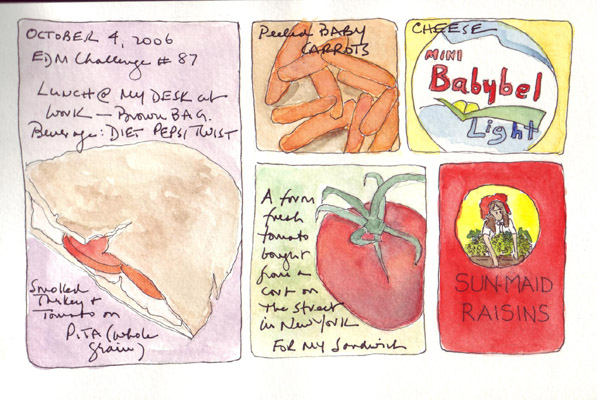 OCTOBER 4, 2006
EDM Challenge # 87
LUNCH @ MY DESK at
WORK — Brown BAG.
Beverage: DIET PEPSI TWIST
Smoked
Turkey +
Tomato on
PITA (whole
grain)
Peeled BABY
CARROTS
CHEESE
MINI
Babybel
Light
A farm
fresh
tomato
bought
from a
cart on
the street
in New York
FOR MY Sandwich
SUN-MAID
RAISINS